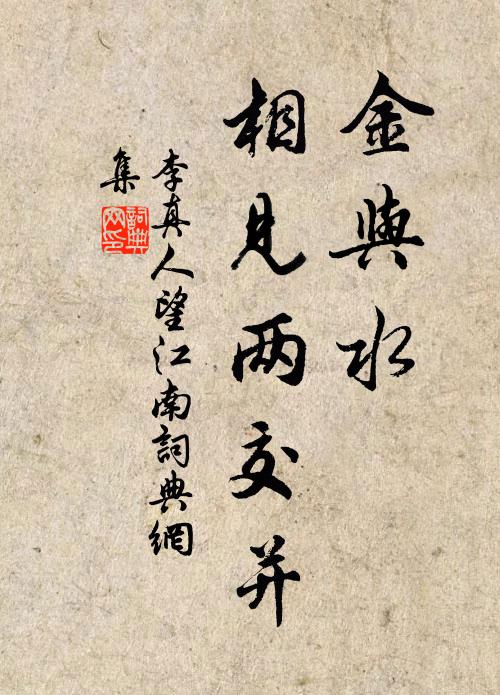 金與水
相見两交并
李真人望江南詞典網
集
詞典網印